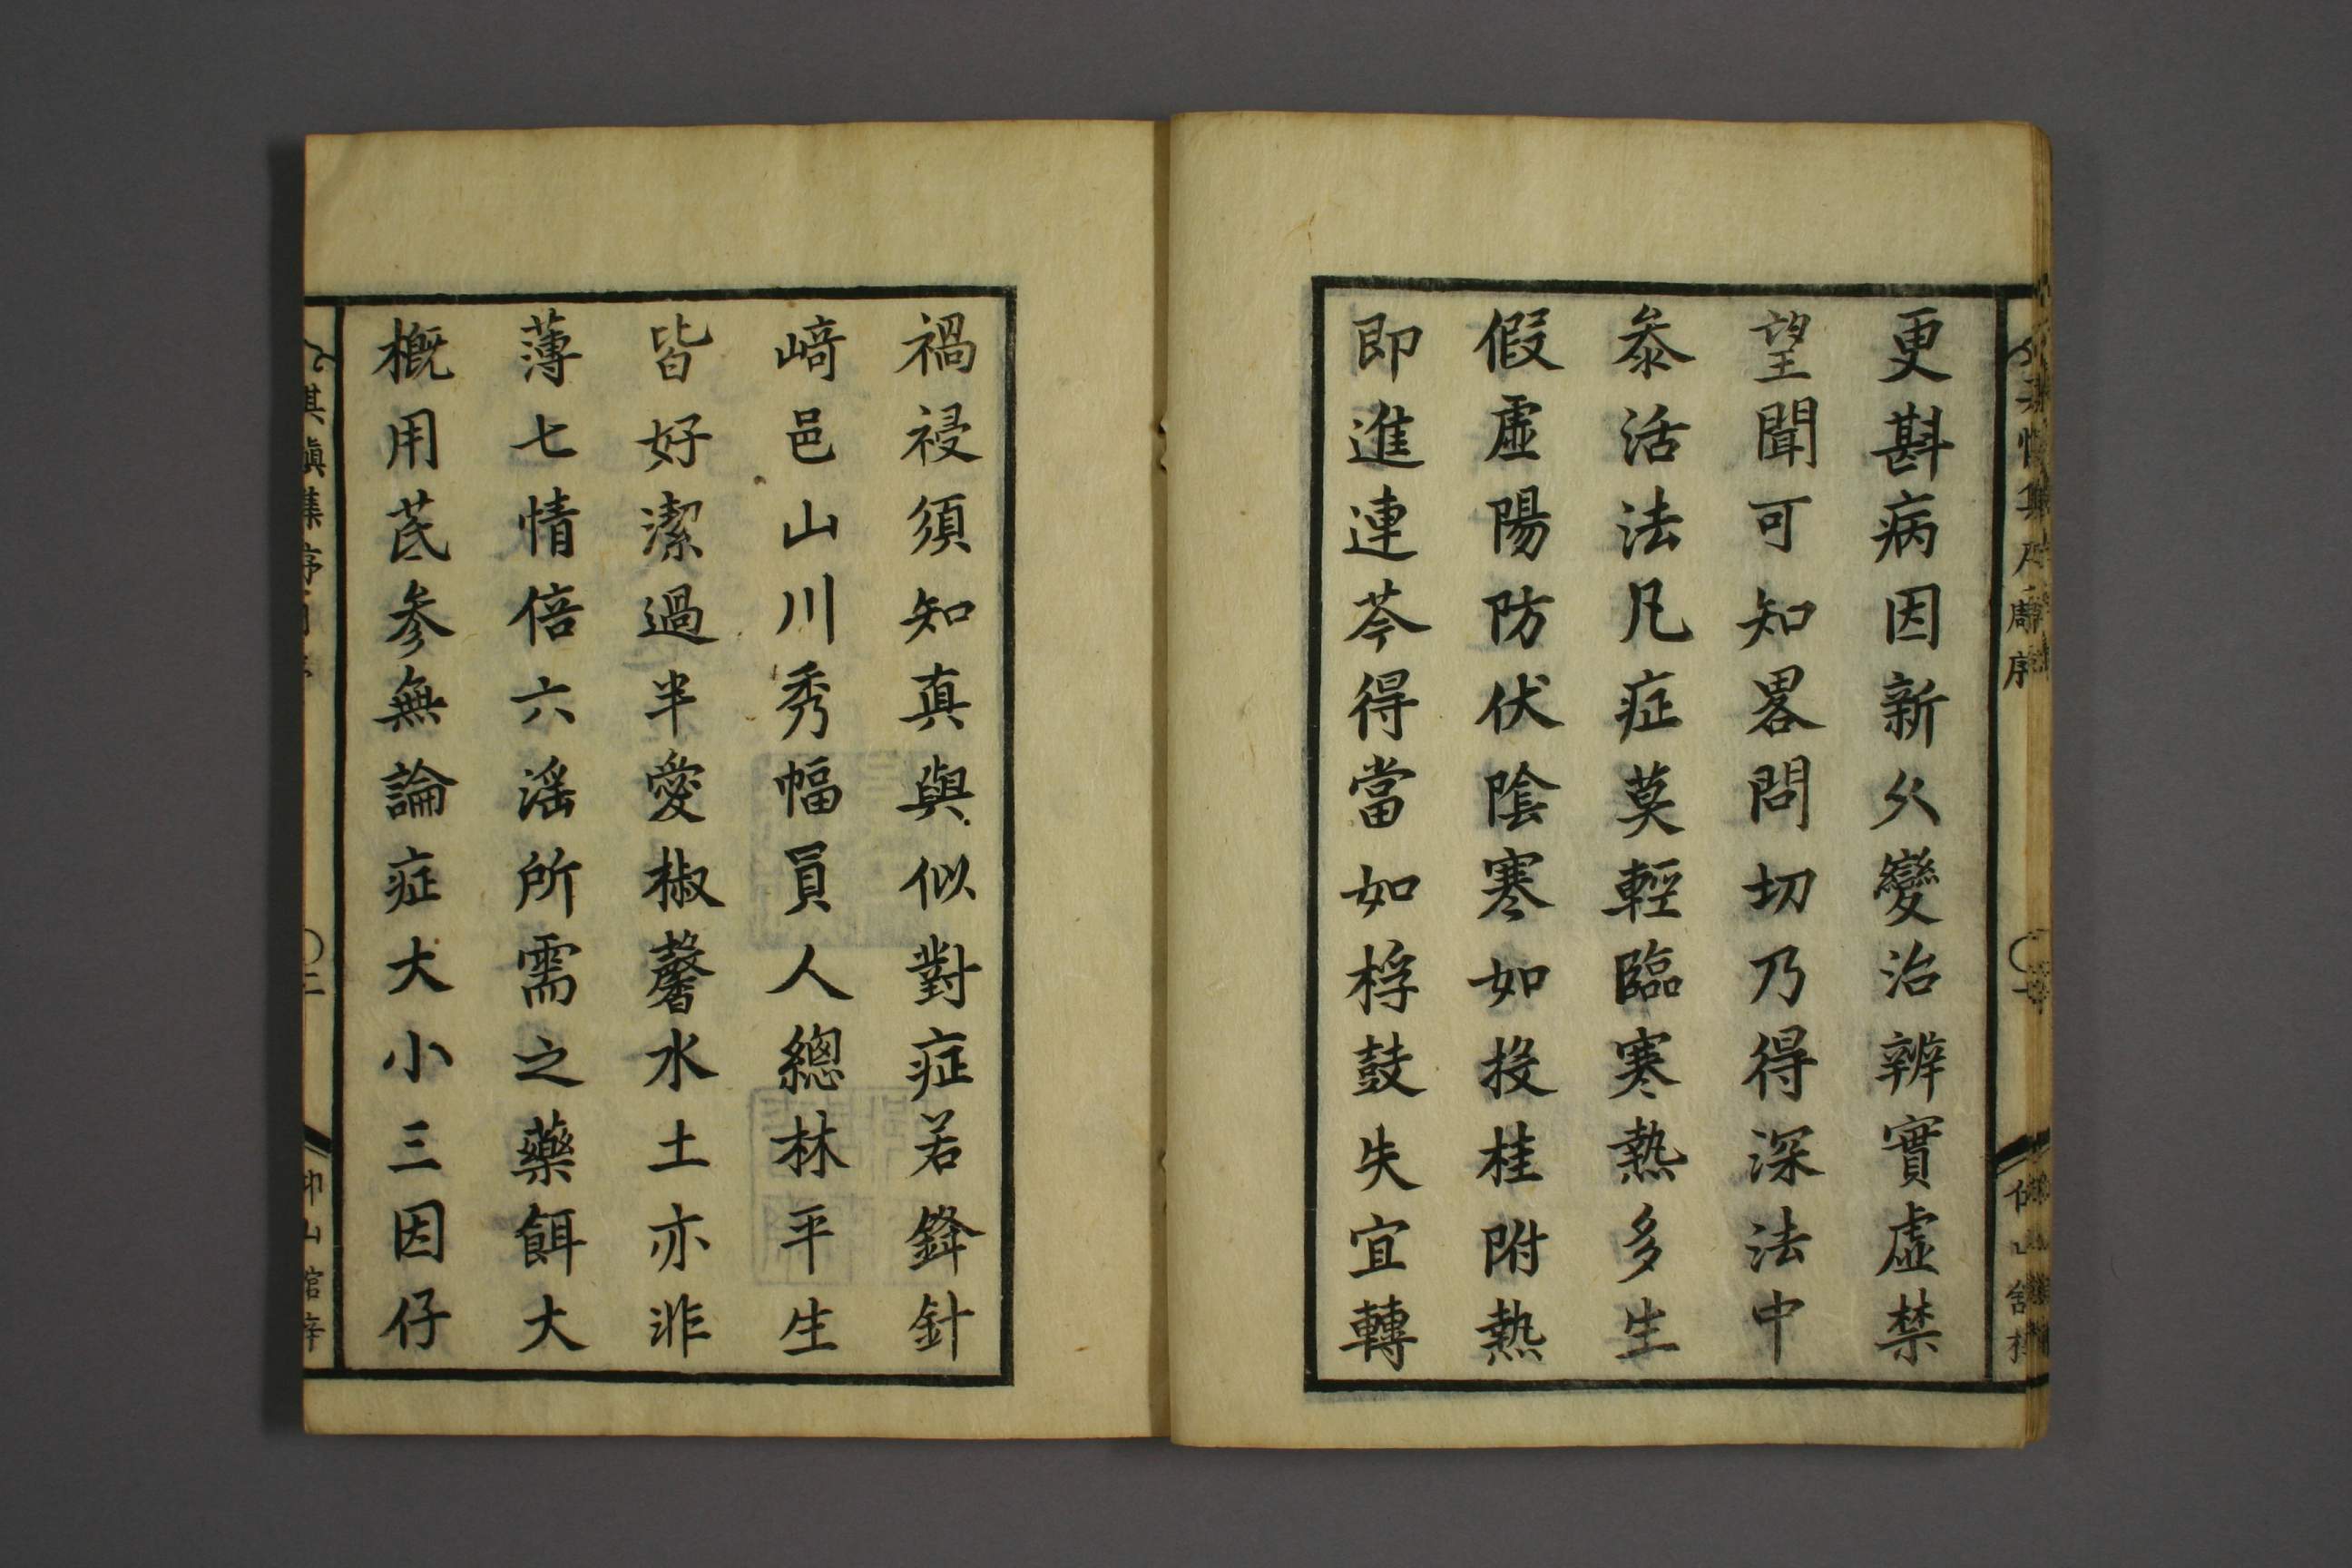 更斟病因新久變治辨實虛禁
望聞可知畧問切乃得深法中
叅活法凡症莫輕臨寒熱多生
假虛陽防伏陰寒如投桂附熱
即進連芩得當如桴鼓失宜轉
禍祲須知真與似對症若鋒針
﨑邑山川秀幅員人總林平生
皆好潔過半愛椒馨水土亦非
薄七情倍六淫所需之藥餌大
概用茋參無論症大小三因仔